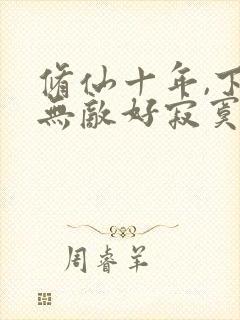 脩仙十年,下
無敵好寂寞
周睿羊